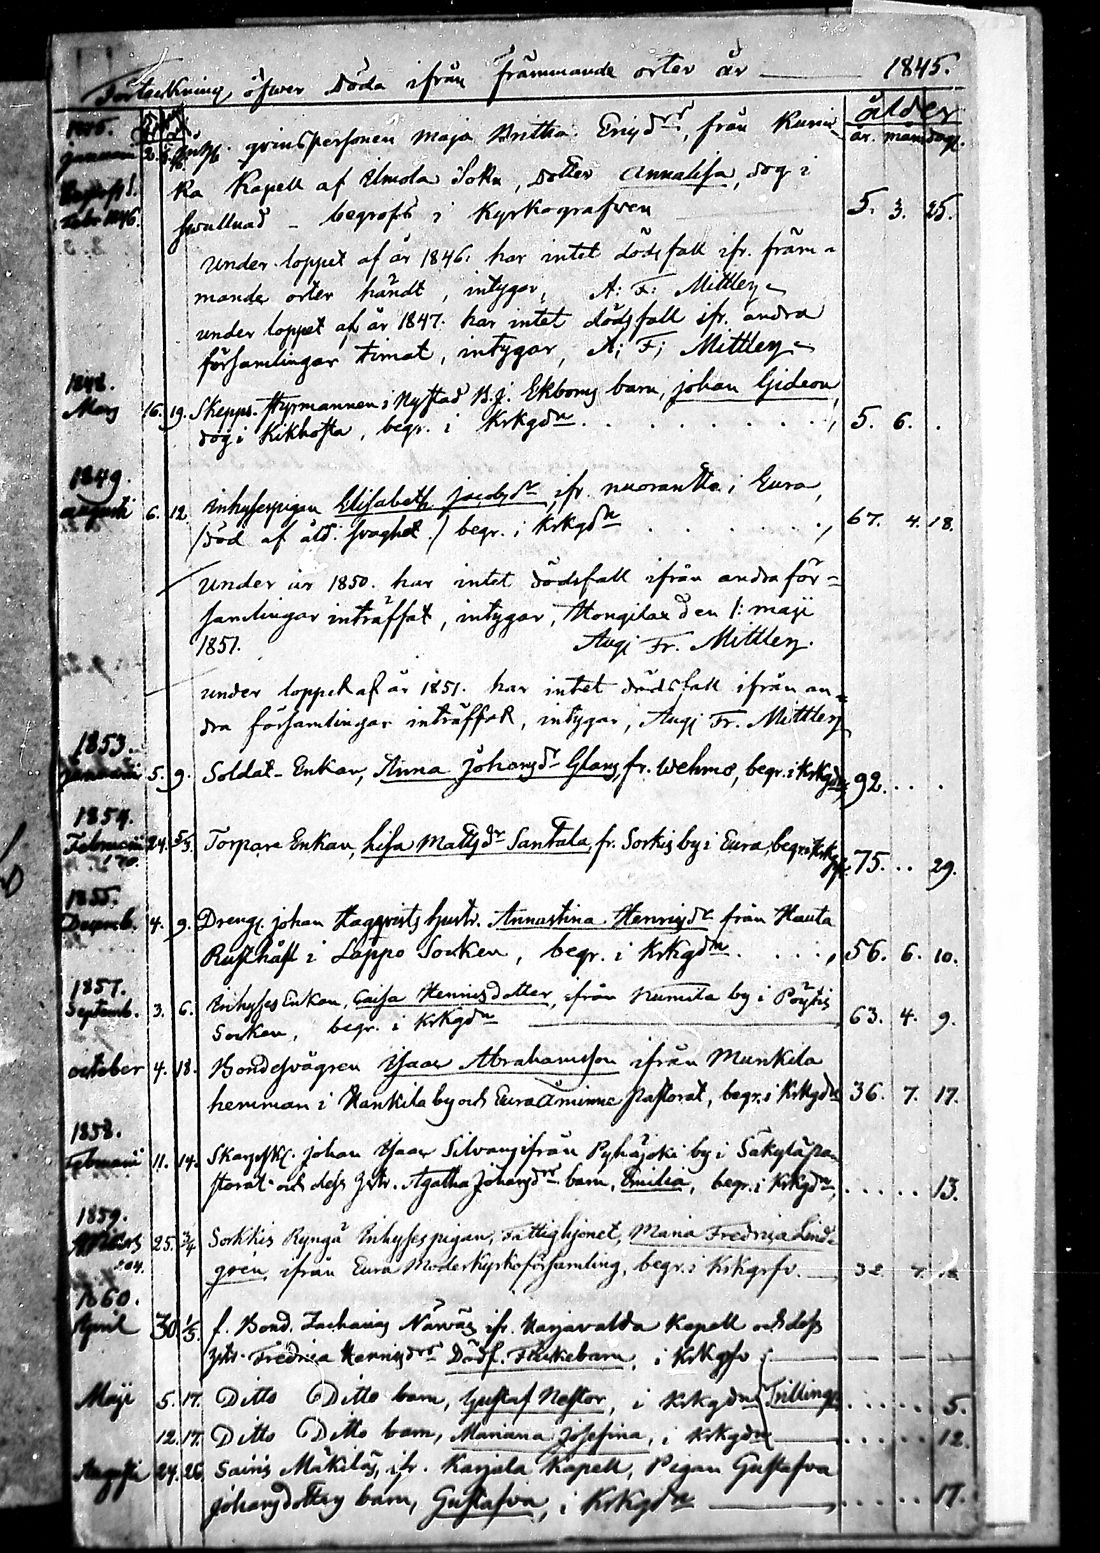 Förteckning öfwer Döda ifrån främmande orter år 1845.
ålder
år. mån. dag.
Januari 2. qvinspersonen Maja Britha Ericsdrs, från Kumi
ka Kapell af Ulmola Sokn, dotter Annalisa, dog i
Febr 1846. swullnad - begrofs i Kyrkografwen 5. 3. 25.
under loppet af år 1846. har intet dödsfall ifr. främ-
mande orter händt, intygar, A: F: Mittler
under loppet af år 1847. har intet dödsfall ifr. andra
församlingar timat, intygar, A; F; Mittler
1848.
Mars 16. 19. Skepps. Styrmannen i Nystad B.J. Ekboms barn, Johan Gideon,
dog i Kikhosta, begr. i Krkgdn 5. 6. .
1849.
Augusti 6. 12. Inhysespigan Elisabeth Jacobsdr, ifr. nuoranta i Eura,
(död af åld. svaghet.) begr. i Krkgdn 67. 4. 18.
under år 1850. har intet dödsfall ifrån andra för=
samlingar inträffat, intygar, Hongilax den 1: maji
1851. Aug: Fr. Mittler.
under loppet af år 1851. har intet dödsfall ifrån an=
dra församlingar inträffat, intygar, Aug: Fr. Mittler
1853.
Januari 5. 9. Soldat-Enkan, Anna Johansdr Glans, fr. Wehmo, begr. i Krkgdn, 92. . . .
1854.
Februari 24. 5/3. Torpare Enkan, Lisa Mattsdr Santala, fr. Sorkis by i Eura, begr. i 75. . . 29.
1855.
Decemb. 4. 9. Drengs Johan Hagqvists hustr. Annastina Henricsdr från Hauta
Rusthåll i Lappo Socken, begr. i Krkgdn 56. 6. 10.
1857.
Septemb. 3. 6. Inhyses Enkan, Caisa Henricsdotter, ifrån Numila by i Pöytis
Socken, begr. i Krkgdn 63. 4. 9.
october 4. 18. Bondesvågren Isaac Abrahamsson ifrån Munkila
hemman i Kankila by och Eura Åminne Pastorat, begr. i Krkgdn 36. 7. 17.
1858.
Februari 11. 14. Johan Isaac Silvan ifrån Pyhäjoki by i Säkylä pa
storat och dess hstr. Agatha Johansdrs barn, Emilia, begr. i Krkgdn, . . . . . 13.
1859.
25. 3/4 Sorkkis Ryngä Inhysespigan, Fattighjonet, Maria Fredrica Lind-
groen, ifrån Eura Moderkyrkoförsamling, begr. i Krkgrfv. 32.
1860.
April 30. 1/5. f. Bond. Zacharias Närväs ifr. Harjavalda Kapell och dess
hstr. Fredrica Henricsdrs Dödf. Flickebarn, i Krkgfv
Maji 5. 17. Ditto Ditto barn, Gustaf Nestor, i Krkgdn Trillings . . . . . 5.
12. 17. Ditto Ditto barn, Mariana Josefina, i Krkgdn . . . . . 12.
Augusti 24. 26. Sainis Mäkilä, ifr. Karjala Kapell, Pigan Gustafva
Johansdotters barn, Gustafva, i Krkgdn . . . . . 17.